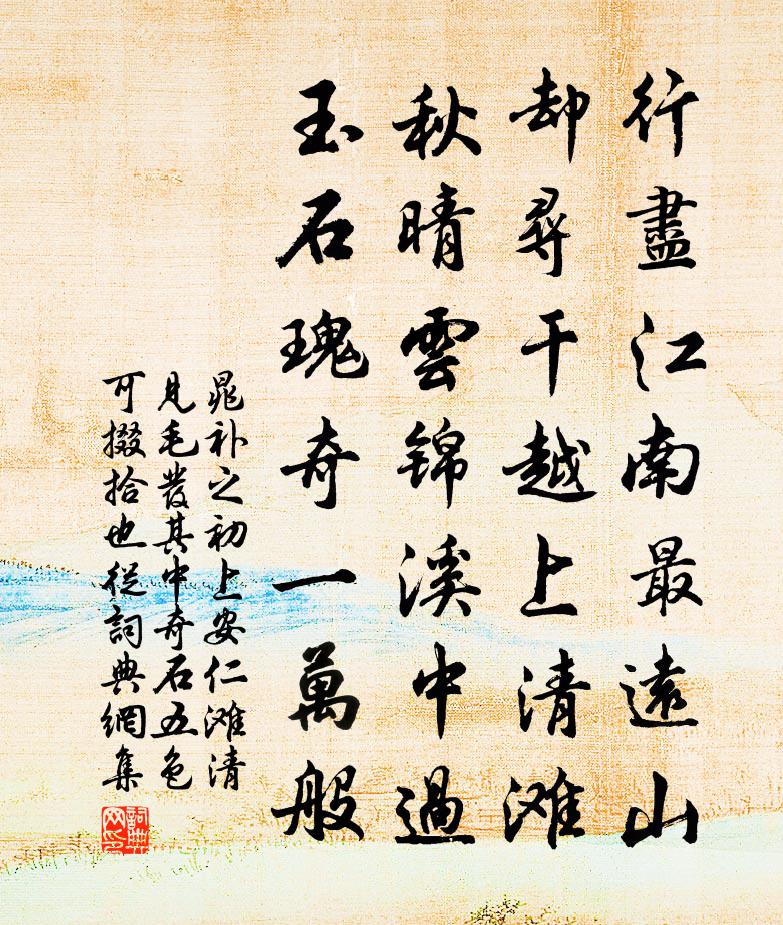 行盡江南最遠山
却尋干越上清滩
秋晴雲锦溪中過
玉石瑰奇一萬般
晁补之初上安仁滩清
见毛发其中奇石五色
可掇拾也從詞典網集
詞典
网印